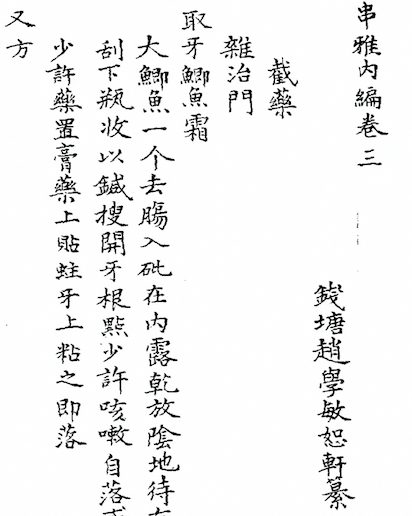 串雅內編卷三
錢塘趙學敏恕軒纂
截藥
雜治門
取牙鯽魚霜
大鯽魚一个去腸入砒在內露乾放陰地待
刮下瓶收以鍼搜開牙根點少許咳嗽自落
少許藥置膏藥上貼蛀牙上粘之即落
又方